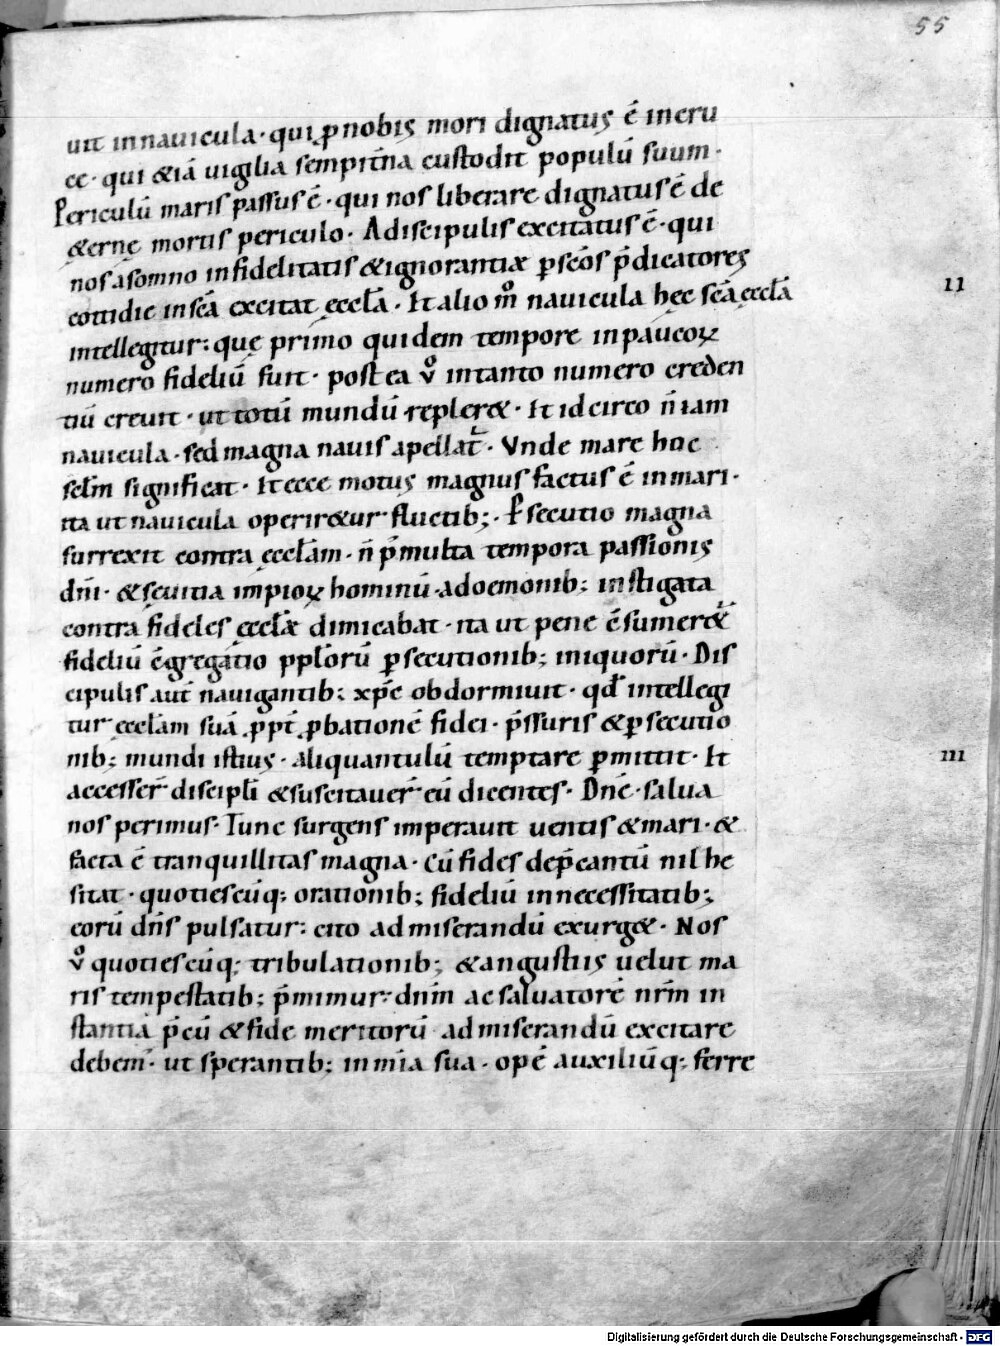 55
uit in nauicula · qui ꝓ nobis mori dignatus ē in cru
ce · qui &iā uigilia sempit̄na custodit populū suum ·
Periculū maris passus ē · qui nos liberare dignatus ē de
&ernę mortis periculo · A discipulis excitatus ē · qui
nos a somno infidelitatis & ignorantiæ ꝑ sc̄os p̄dicatores
cottidie in sc̄a excitat ęccl̄a · It alio m̊ nauicula hęc sc̄a ęccl̄a
II
intellegitur: quę primo quidem tempore in paucoꝝ
numero fideliū fuit · postea v̊ in tanto numero creden
tiū creuit · ut totū mundū repler& · Et idcirco n̄ iam
nauicula · sed magna nauis apellat̄ · Vnde mare hoc
sēlm significat · Et ecce motus magnus factus ē in mari ·
ita ut nauicula operir&ur fluctib; · Ꝑsecutio magna
surrexit contra ęccl̄am · n̄ p̄ multa tempora passionis
dn̄i · & sęuitia impioꝝ hominū · a doemonib; instigata
contra fideles ęccl̄æ dimicabat · ita ut pene ēsumer&ur
fideliū ēgregatio ppl̄orū ꝑsecutionib; iniquorū · Dis
cipulis aut̄ nauigantib; xp̄c obdormiuit · qd̄ intellegi
tur ęccl̄am suā ꝓpt̄ ꝓbationē fidei · p̄ssuris & ꝑsecutio
nib; mundi istius · aliquantulū temptare ꝑmittit · Et
III
accesser̄ discipl̄i & suscitauer̄ eū dicentes · Dn̄e · salua
nos perimus · Tunc surgens imperauit uentis & mari · &
facta ē tranquillitas magna · Cū fides dep̄cantū nil he
sitat · quotiescūq; orationib; fideliū in necessitatib;
eorū dn̄s pulsatur: cito ad miserandū exurg& · Nos
v̊ quotiescūq; tribulationib; & angustiis uelut ma
ris tempestatib; p̄mimur: dn̄m ac saluatorē nr̄m in
stantia p̄cū & fide meritorū ad miserandū excitare
debem̄ · ut sperantib; in mīa sua · opē auxiliūq; ferre
Digitalisierung gefördert durch die Deutsche Forschungsgemeinschaft - DFG